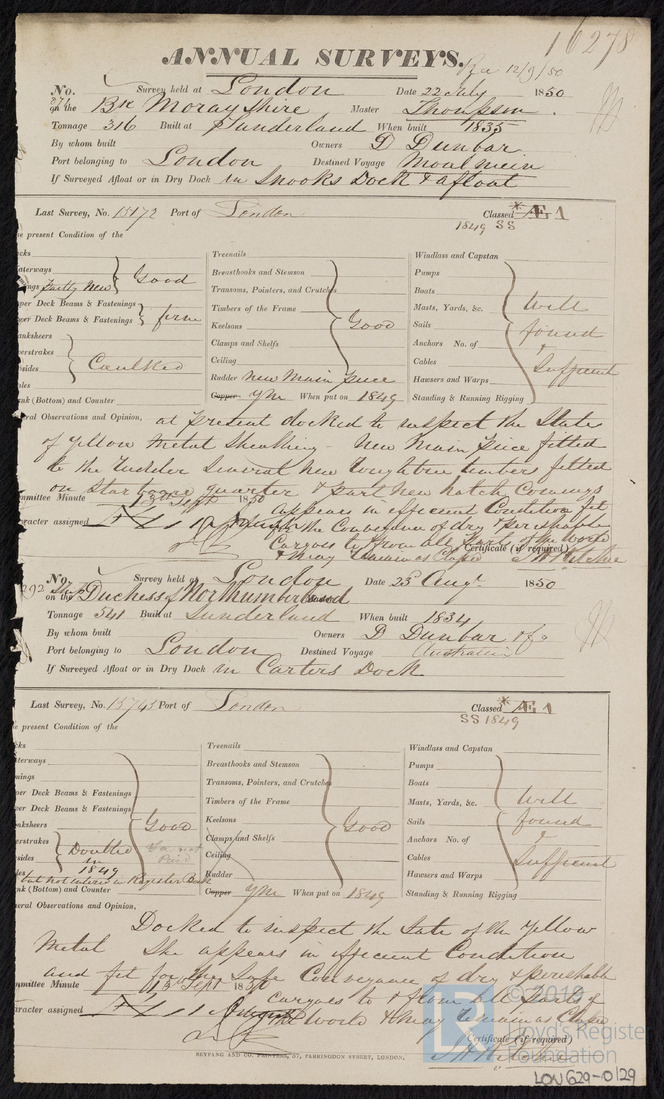 16278
ANNUAL SURVEYS.
12/9/50
No. 271 Survey held at London Date 22 July 1850
on the Bk Morayshire Master Thompson
Tonnage 316 Built at Sunderland When built 1835
By whom built Owners D Dunbar
Port belonging to London Destined Voyage Moalmein
If Surveyed Afloat or in Dry Dock in Snooks Dock & afloat
Last Survey, No. 15172 Port of London Classed Æ 1
1849 SS
e present Condition of the
cks
aterways
ings partly New Good
per Deck Beams & Fastenings
wer Deck Beams & Fastenings firm
anksheers
erstrakes
sides Caulked
ales
ank (Bottom) and Counter
Treenails
Breasthooks and Stemson
Transoms, Pointers, and Crutches
Timbers of the Frame
Keelsons Good
Clamps and Shelfs
Ceiling
Rudder New Main piece
Copper YM When put on 1849
Windlass and Capstan
Pumps
Boats
Masts, Yards, &c. Well
Sails found
Anchors No. of &
Cables Sufficient
Hawsers and Warps
Standing & Running Rigging
eral Observations and Opinion, at present docked to inspect the State
of Yellow Metal Sheathing - New Main piece fitted
to the Rudder Several new timbers fitted
on Starboard quarter & part new hatch Comings
mmittee Minute 13th Sept 1850 appears in efficient Condition fit
aracter assigned for the Conveyance of dry & perishable
Cargoes to & from all Parts of the World
& may remain as Classed Certificate (if required)
No. 292 Survey held at London Date 23rd Augt 1850
on the Ship Duchess of Northumberland
Tonnage 541 Built at Sunderland When built 1834
By whom built Owners D Dunbar & Co
Port belonging to London Destined Voyage Australia
If Surveyed Afloat or in Dry Dock in Carters Dock
Last Survey, No. 15743 Port of London Classed Æ 1
SS 1849
e present Condition of the
cks
aterways
mings
per Deck Beams & Fastenings
per Deck Beams & Fastenings
anksheers Good
erstrakes Doubled
sides in
ales 1849
but not entered in Register Book
ank (Bottom) and Counter
Treenails
Breasthooks and Stemson
Transoms, Pointers, and Crutches
Timbers of the Frame
Keelsons Good
Clamps and Shelfs
Ceiling
Rudder
Copper YM When put on 1849
Windlass and Capstan
Pumps
Boats
Masts, Yards, &c. Well
Sails found
Anchors No. of &
Cables Sufficient
Hawsers and Warps
Standing & Running Rigging
eral Observations and Opinion,
Docked to inspect the State of the Yellow
Metal She appears in efficient Condition
and fit for the Safe Conveyance of dry & perishable
mmittee Minute 13 Sept 1850 Cargoes to & from all Parts of
aracter assigned the World & may remain as Classed
Certificate (if required)
BEYFANG AND CO. PRINTERS, 57, FARRINGDON STREET, LONDON.
© 2019
Lloyd's Register
Foundation
LON629-0129